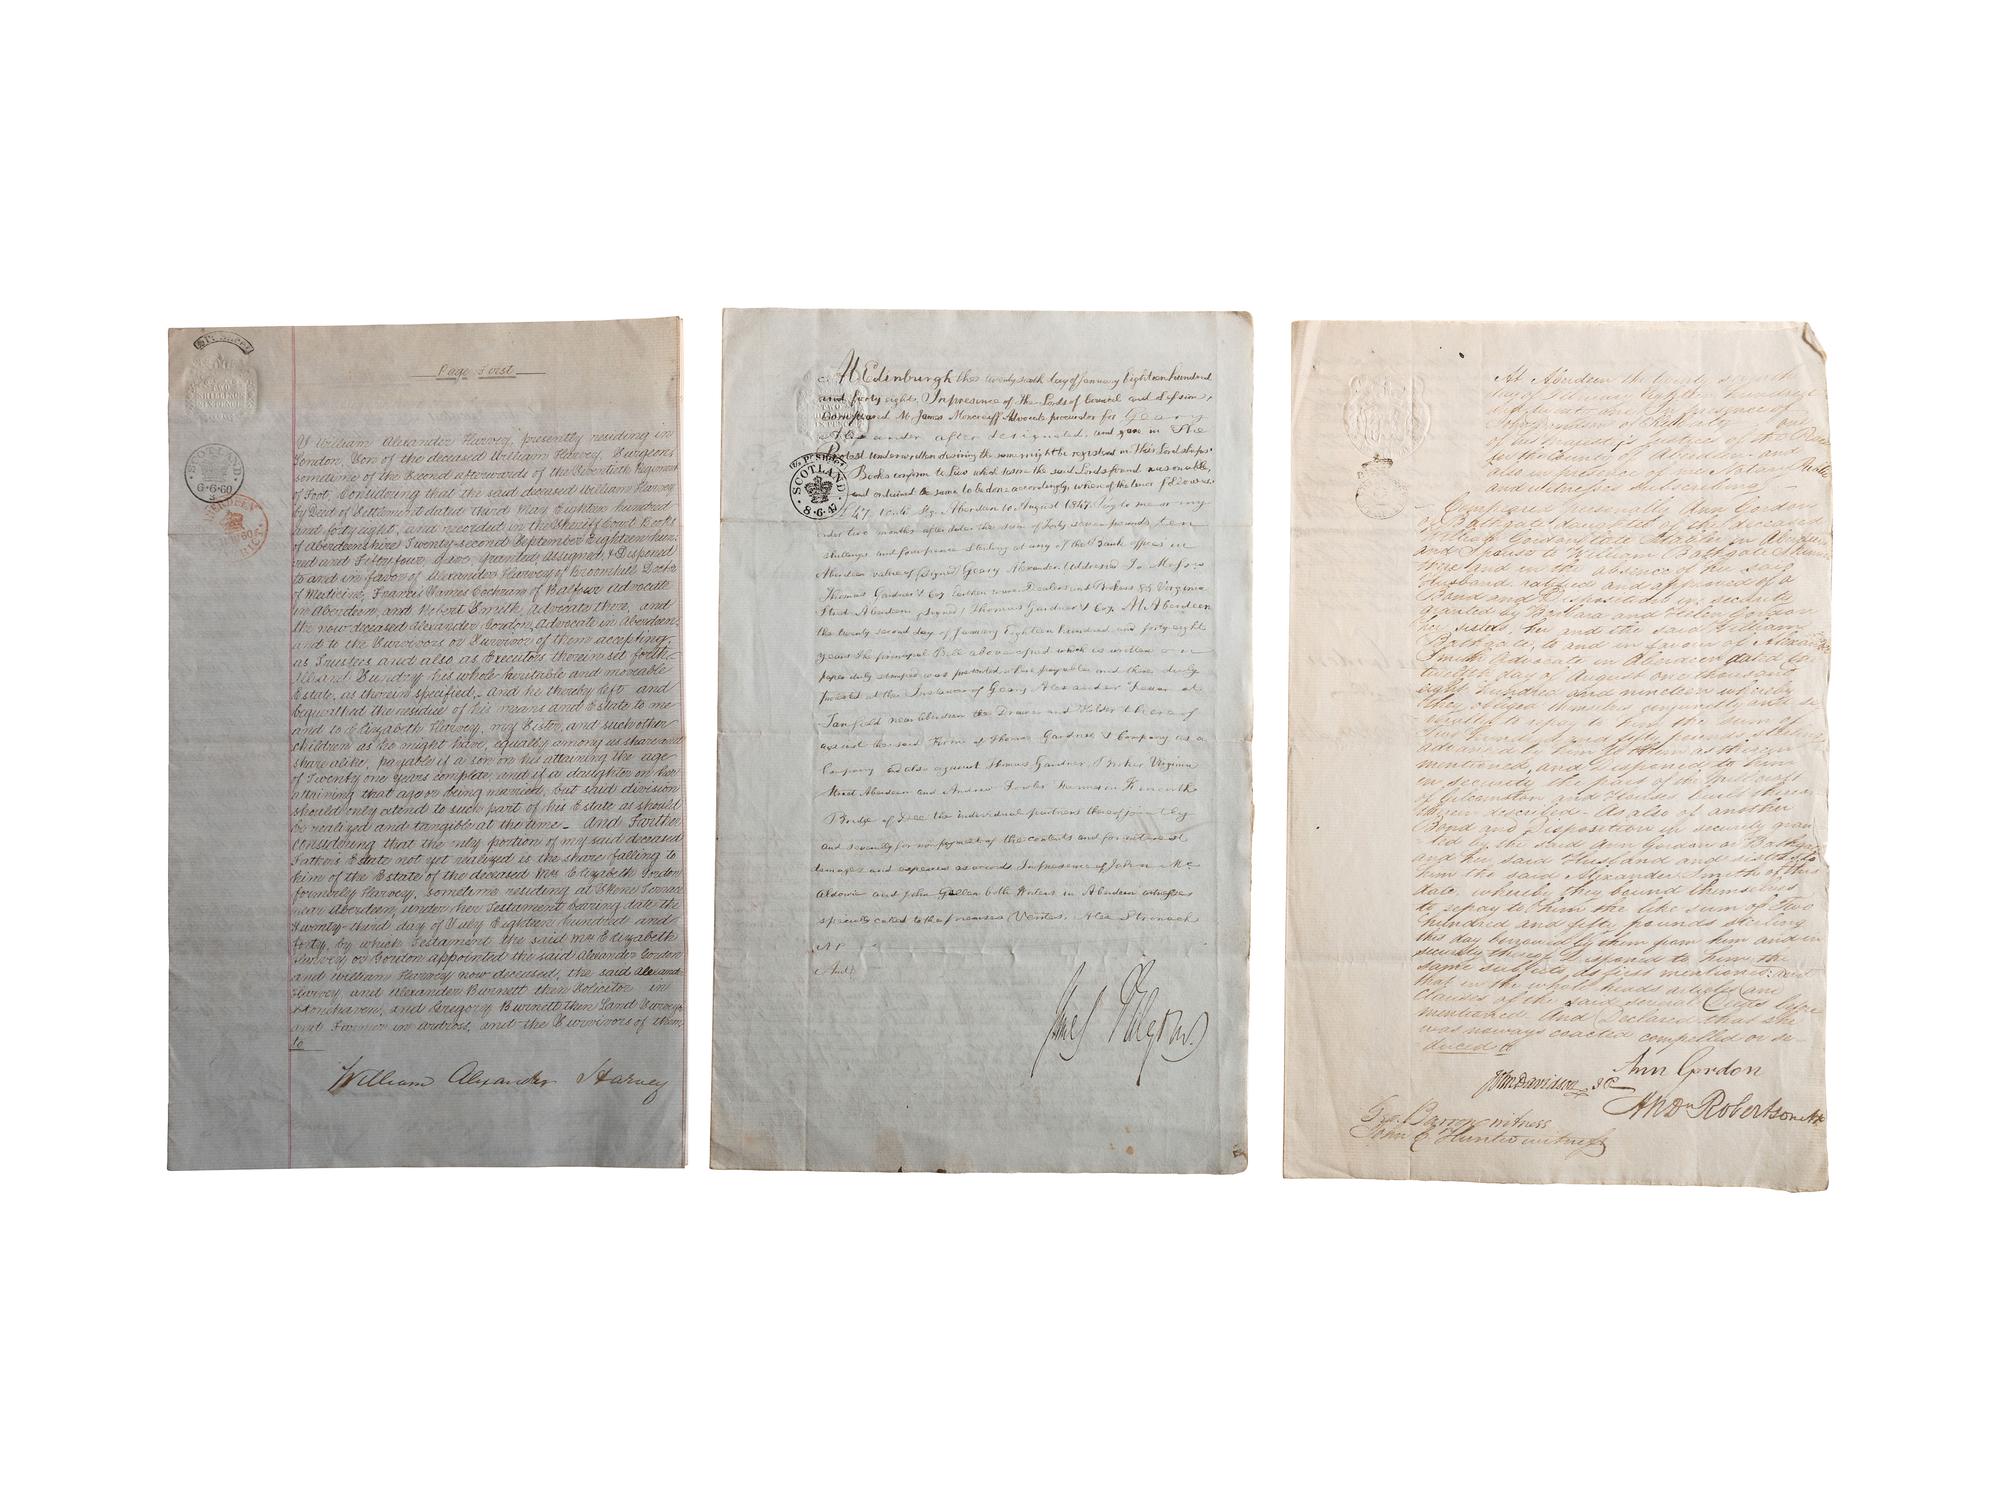 Page First
I William Alexander Harvey, presently residing in
London, Son of the deceased William Harvey, Surgeon
sometime of the Second afterwards of the Seventieth Regiment
of Foot, Considering that the said deceased William Harvey
by Deed of Settlement dated third May Eighteen hundred
and forty eight, and recorded in the Sheriff Court Books
of Aberdeenshire Twenty-second September Eighteen hun
dred and Fifty four years, granted, assigned & Disponed
to and in favor of Alexander Harvey of Broomhill Doctor
of Medicine, Francis James Cochran of Balfour Advocate
in Aberdeen, and Robert Smith, Advocate there, and
the now deceased Alexander Gordon, Advocate in Aberdeen,
and to the Survivors or Survivor of them accepting,
as Trustees and also as Executors therein set forth
All and Sundry his whole heritable and moveable
Estate, as therein specified, and he thereby left and
bequeathed the residue of his means and Estate to me
and to Elizabeth Harvey, my Sister, and such other
children as he might have, equally among us share and
share alike, payable if a son on his attaining the age
of Twenty one years complete, and if a daughter on her
attaining that age or being married, but said division
should only extend to such part of his Estate as should
be realized and tangible at the time - And Further
considering that the only portion of my said deceased
Father's Estate not yet realized is the share falling to
him of the Estate of the deceased Mrs Elizabeth Gordon
formerly Harvey, sometime residing at Skene Terrace
near Aberdeen, under her Testament bearing date the
Twenty-third day of July Eighteen hundred and
forty, by which Testament the said Mrs Elizabeth
Harvey or Gordon appointed the said Alexander Gordon
and William Harvey now deceased, the said Alexander
Harvey, and Alexander Burnett then Solicitor in
Stonehaven, and Gregory Burnett then Land Surveyor
and Farmer in Ardross, and the Survivors of them
to
William Alexander Harvey
TWO
SHILLINGS
SCOTLAND
6·6·60
ABERDEEN
At Edinburgh the twenty sixth day of January Eighteen hundred
and forty eight, In presence of the Lords of Council and Session,
Compeared Mr James Moncreiff Advocate procurator for Geary
Alexander after designated, and gave in The
Protest underwritten desiring the same might be registered in Their Lordships'
Books conform to Law which desire the said Lords found reasonable,
and ordained the same to be done accordingly, whereof the tenor follows.
£47. 10/4 Stg. Aberdeen 10 August 1847. Pay to me or my
order two months after date the sum of Forty seven pounds, ten
shillings and fourpence Sterling at any of the Bank offices in
Aberdeen value of (Signed) Geary Alexander Address To Messrs
Thomas Gardner & Coy. Earthen ware Dealers and Brokers Virginia
Street Aberdeen, (Signed) Thomas Gardner & Coy. At Aberdeen
the twenty second day of January Eighteen hundred and forty eight
years The principal Bill above copied which is written on
paper duly stamped was presented where payable and there duly
protested at the Instance of Geary Alexander Feuar at
Tanfield near Aberdeen the Drawer and Holder thereof
against the said Firm of Thomas Gardner & Company as a
Company and also against Thomas Gardner, Broker Virginia
Street Aberdeen and Andrew Fowler
Bridge of Dee the individual partners thereof jointly
and severally for non payment of the contents and for interest
damages and expenses as accords In presence of John Mc
and John both Writers in Aberdeen witnesses
specially called to the premises (Veritas. Alex Stronach
N P
And
SCOTLAND
8·6·47
At Aberdeen the twenty seventh
day of February Eighteen hundred
and twenty
of his Majesty's Justices of the Peace
for the County of Aberdeen - and
also in presence of me Notary Public
and witnesses subscribing
Compeared personally Ann Gordon
or Bathgate daughter of the deceased
William Gordon late in Aberdeen
and Spouse to William Bathgate
there and in the absence of her said
Husband ratified and approved of a
Bond and Disposition in security
granted by Barbara and Helen Gordon
her sisters, her and the said William
Bathgate, to and in favour of Alexander
Smith Advocate in Aberdeen dated the
twelfth day of August one thousand
eight hundred and nineteen whereby
they obliged themselves conjunctly and se
verally to repay to him the sum of
Two hundred and fifty pounds sterling
advanced by him to them as therein
mentioned, and Disponed to him
in security the part of the
of Gilcomston and Houses built thereon
therein described - As also of another
Bond and Disposition in security gran
ted by the said Ann Gordon or Bathgate
and her said Husband and sisters to
him the said Alexander Smith of this
date, whereby they bound themselves
to repay to him the like sum of Two
hundred and fifty pounds sterling
this day borrowed by them from him and in
security thereof Disponed to him the
same subjects as first mentioned: and
that in the whole heads articles and
clauses of the said several Deeds before
mentioned And Declared that she
was noways coacted compelled or se-
duced to
Ann Gordon
John Davidson J.P.
Andw Robertson N.P.
Geo. Barron witness
John E. Hunter witness